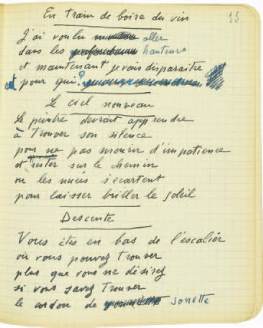 En train de boire du vin
J'ai voulu aller
dans les hauteurs
et maintenant je vais disparaître
et pour qui?
Le ciel nouveau
Le peintre devrait apprendre
à trouver son silence
pour ne pas mourir d'impatience
et rester sur le chemin
où les nuées s'écartent
pour laisser briller le soleil
Descente
Vous êtes en bas de l'escalier
où vous pouvez trouver
plus que vous ne désirez
si vous savez trouver
le cordon de sonette